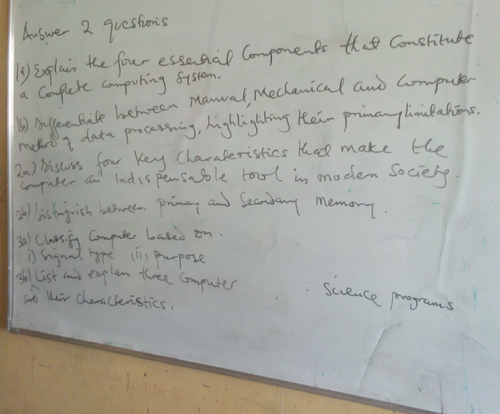 Answer 2 questions
1a) Explain the four essential Components that Constitute
a Complete computing System.
1b) Differentiate between Manual, Mechanical and Computer
method of data processing, highlighting their primary limitations.
2a) Discuss four Key Charateristics that make the
Computer an Indispensable tool in modern Society.
2b) Distinguish between primary and Secondary Memory.
3a) Classify Computer based on.
i) Signal type ii) purpose.
3b) List and explain three Computer
and their characteristics.
Science programs